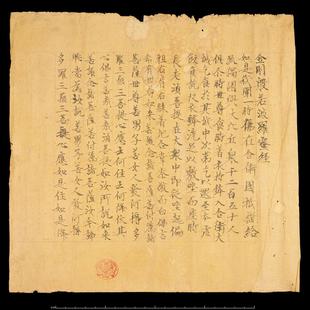 金剛般若波羅蜜經
如是我聞一時佛在舍衛國祇樹給
孤獨園與大比丘衆千二百五十人
俱尒時世尊食時著衣持鉢入舍衛大
城乞食於其城中次第乞已還至本處
飯食訖收衣鉢洗足已敷座而座時
長老須菩提在大衆中即從座起偏
袒右肩右膝著地合掌恭敬而白佛言
希有世尊如來善護念諸菩薩善付囑諸
菩薩世尊善男子善女人發阿耨多
羅三藐三菩提心應云何住云何降伏其
心佛言善哉善哉須菩提如汝所說如來
善護念諸菩薩善付囑諸菩薩汝今諦
聽當為汝說善男子善女人發阿耨
多羅三藐三菩提心應如是住如是降